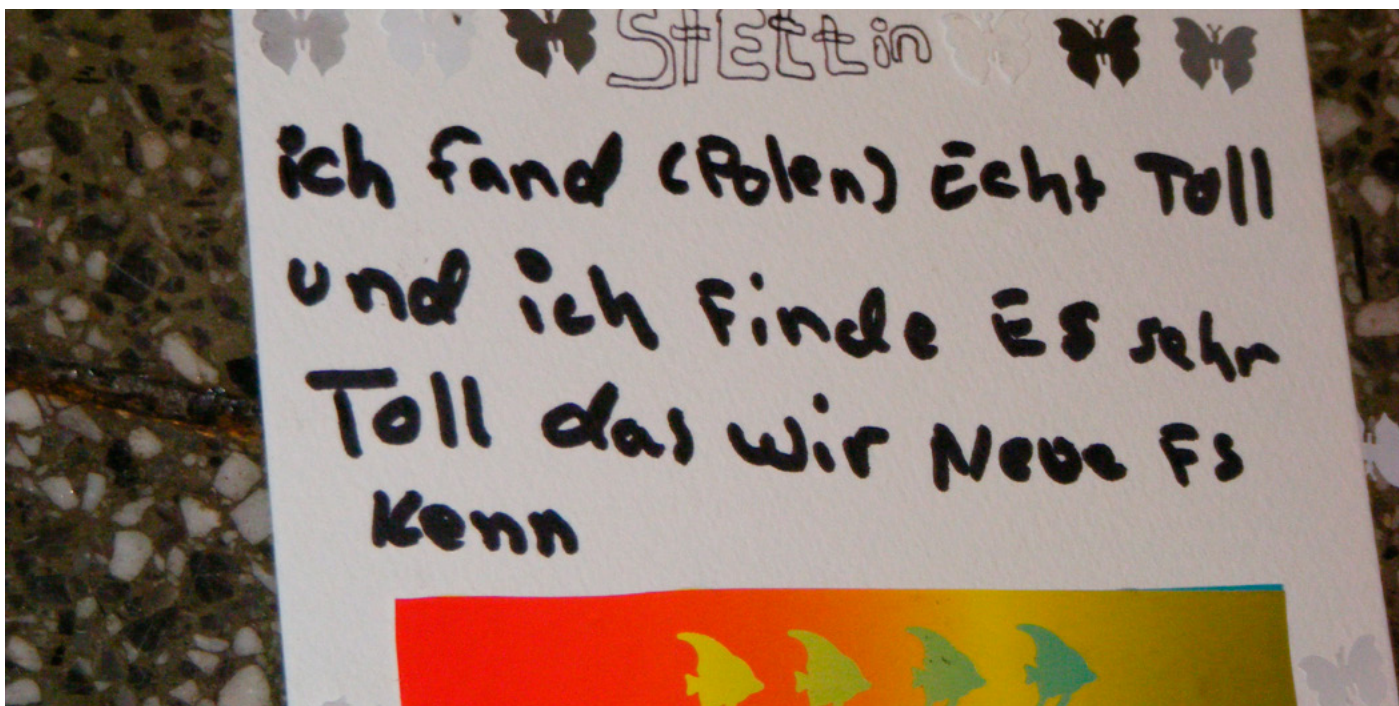 StEttin
ich fand (Polen) Echt Toll
und ich Finde ES sehr
Toll das wir Neue Fs
Kenn